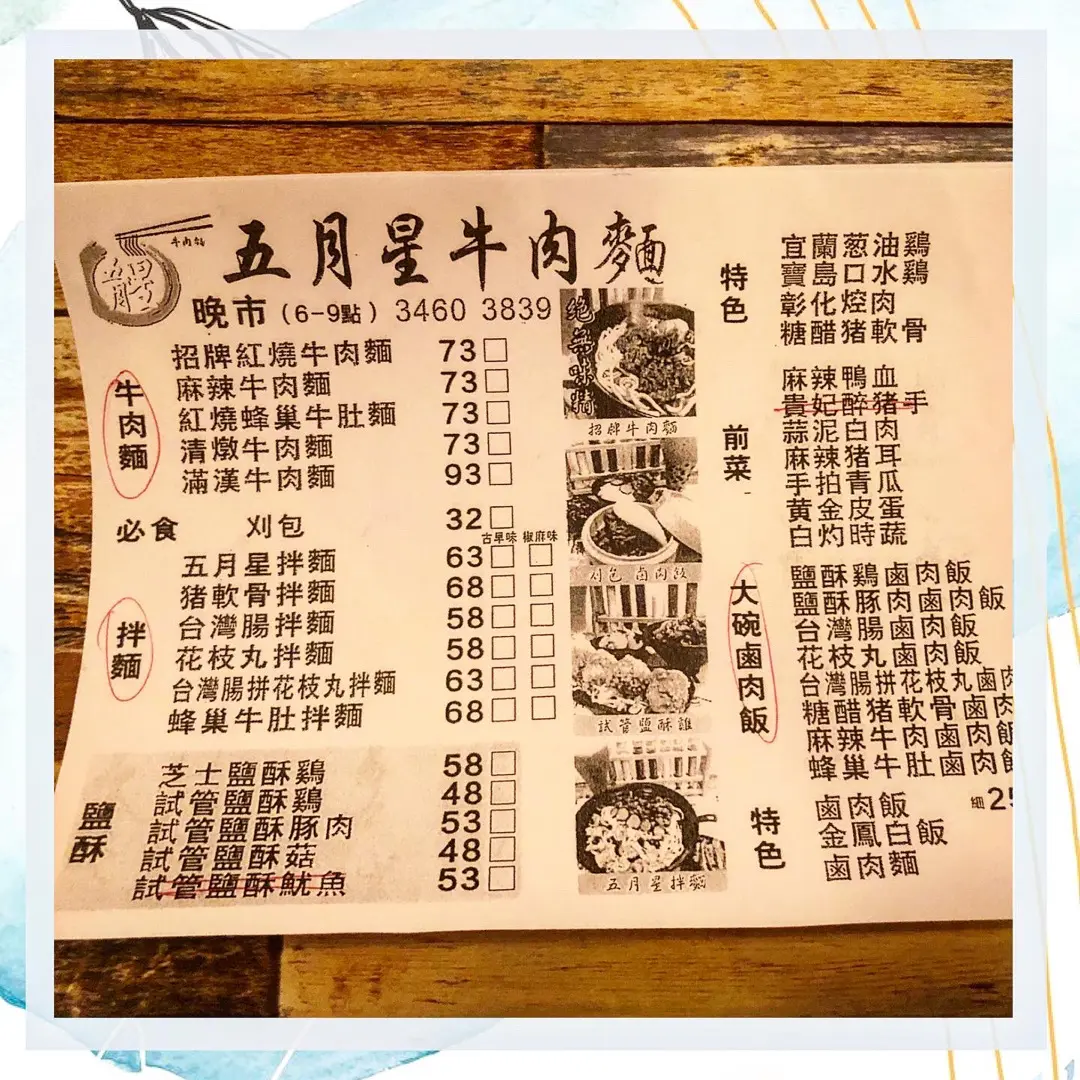 牛肉麵
五月星牛肉麵
晚市 (6-9點) 3460 3839
牛肉麵
招牌紅燒牛肉麵 73
麻辣牛肉麵 73
紅燒蜂巢牛肚麵 73
清燉牛肉麵 73
滿漢牛肉麵 93
必食 刈包 32
古早味 椒麻味
拌麵
五月星拌麵 63
猪軟骨拌麵 68
台灣腸拌麵 58
花枝丸拌麵 58
台灣腸拼花枝丸拌麵 63
蜂巢牛肚拌麵 68
鹽酥
芝士鹽酥鷄 58
試管鹽酥鷄 48
試管鹽酥豚肉 53
試管鹽酥菇 48
試管鹽酥魷魚 53
绝無味精
招牌牛肉麵
刈包 鹵肉飯
試管鹽酥雞
五月星拌麵
特色
宜蘭葱油鷄
寶島口水鷄
彰化焢肉
糖醋猪軟骨
前菜
麻辣鴨血
貴妃醉猪手
蒜泥白肉
麻辣猪耳
手拍青瓜
黄金皮蛋
白灼時蔬
大碗鹵肉飯
鹽酥鷄鹵肉飯
鹽酥豚肉鹵肉飯
台灣腸鹵肉飯
花枝丸鹵肉飯
台灣腸拼花枝丸鹵肉
糖醋猪軟骨鹵肉
麻辣牛肉鹵肉飯
蜂巢牛肚鹵肉飯
特色
鹵肉飯 細2
金鳳白飯
鹵肉麵